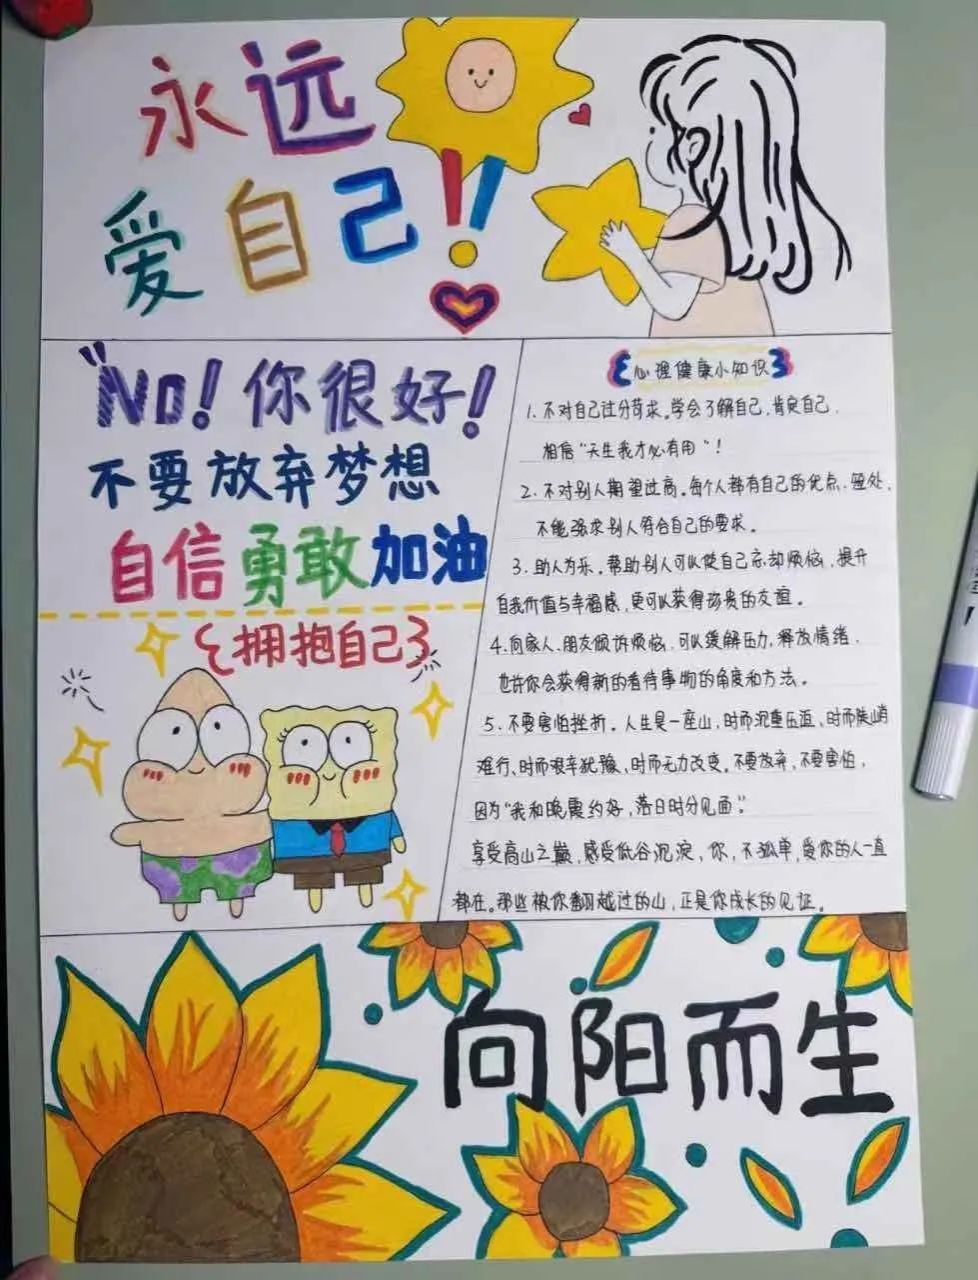 永远
爱自己!!
"No!你很好!
不要放弃梦想
自信勇敢加油
拥抱自己
心理健康小知识
1.不对自己过分苛求。学会了解自己,肯定自己.
相信"天生我才必有用"!
2.不对别人期望过高。每个人都有自己的优点、短处,
不能强求别人符合自己的要求。
3.助人为乐。帮助别人可以使自己忘却烦恼,提升
自我价值与幸福感,更可以获得珍贵的友谊。
4.向家人、朋友倾诉烦恼,可以缓解压力,释放情绪.
也许你会获得新的看待事物的角度和方法。
5.不要害怕挫折。人生是一座山,时而沉重压迫,时而陡峭
难行、时而艰辛犹豫,时而无力改变。不要放弃,不要害怕,
因为"我和晚霞约好,落日时分见面".
享受高山之巅,感受低谷沉淀,你,不孤单,爱你的人一直
都在。那些被你翻越过的山,正是你成长的见证。
向阳而生